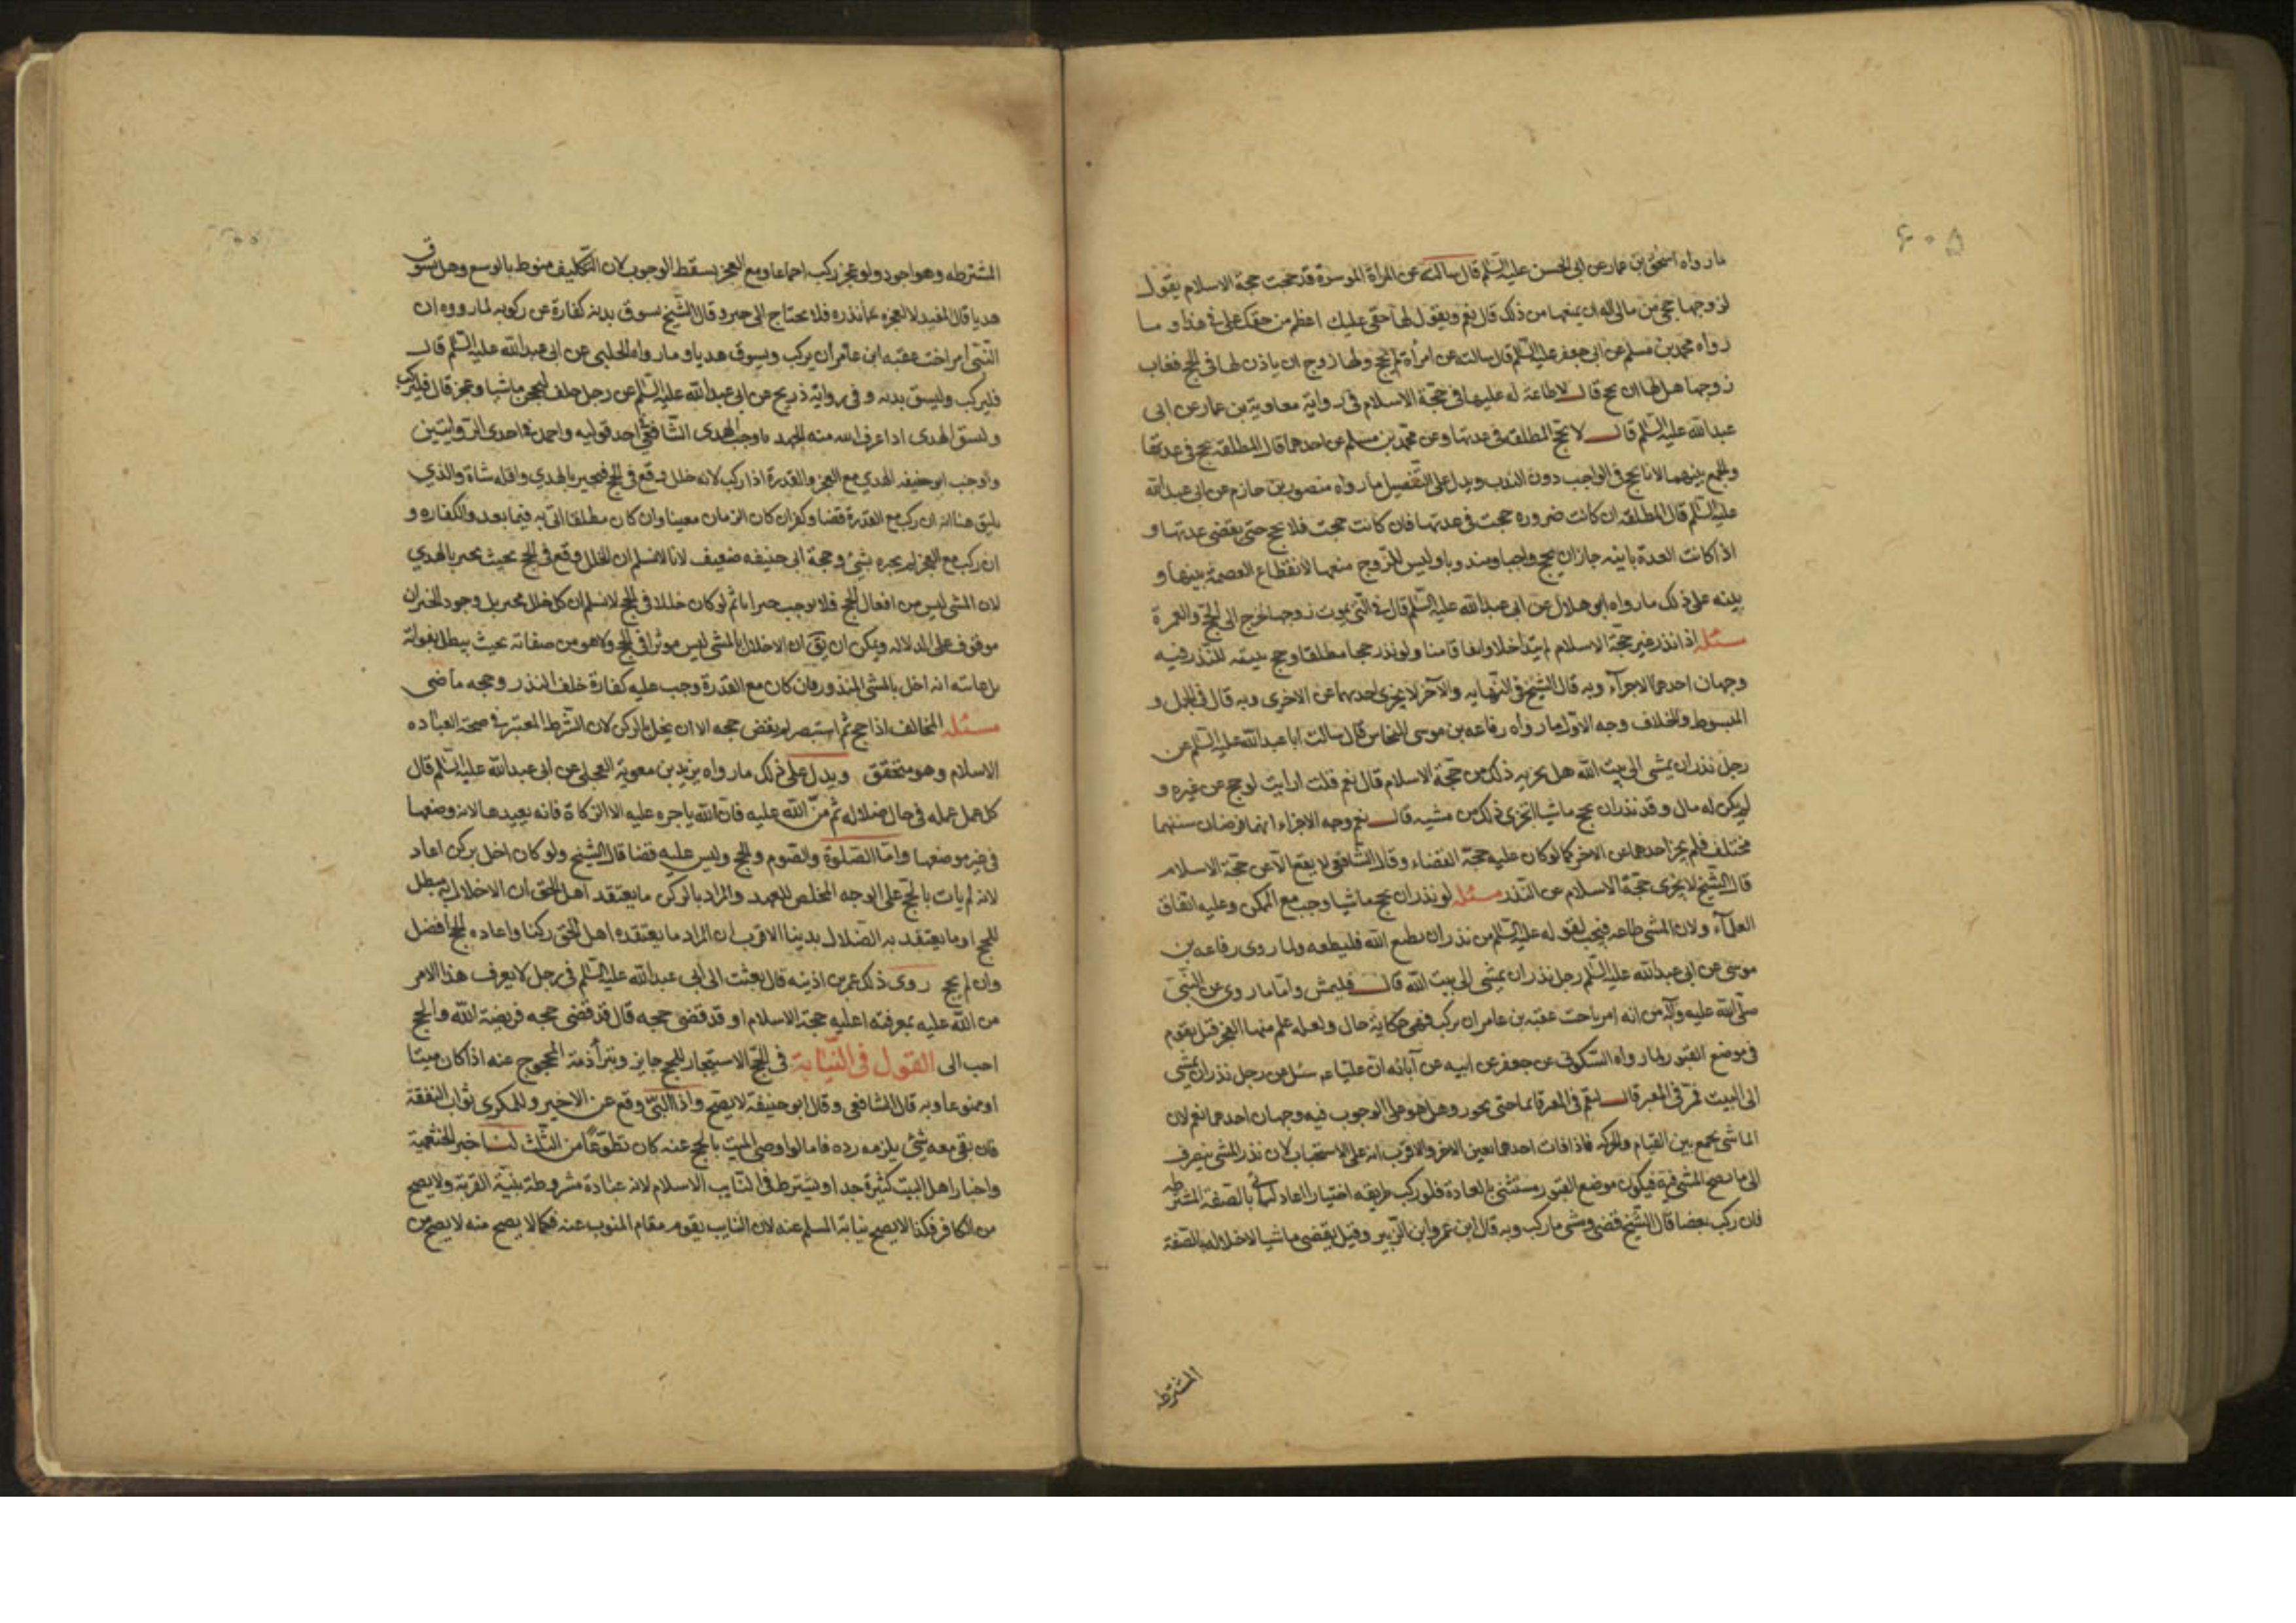 ۶۰۵
ما رواه اسحق بن عمار عن ابى الحسن عليه السّلم قال سالته عن المراة الموسرة قد حجت حجة الاسلام يقول
لزوجها حجنى من مالى اله ان يمنعها من ذلك قال نعم ويقول لها حقى عليك اعظم من حقك على فى هذا و ما
رواه محمد بن مسلم عن ابى جعفر عليه السّلم قال سالته عن امرأة لم تحج ولها زوج ابى ان ياذن لها فى الحج فغاب
زوجها هل لها ان تحج قال لا طاعة له عليها فى حجّة الاسلام فى رواية معاوية بن عمار عن ابى
عبد الله عليه السّلم قال لا تحج المطلقة فى عدتها وعن محمّد بن مسلم عن احدهما قال المطلقة تحج فى عدتها
والجمع بينهما الانا نحج فى الواجب دون الندب ويدل على التفصيل ما رواه منصور بن حازم عن ابى عبد الله
عليه السّلم قال المطلقه ان كانت ضروره حجت فى عدتها فان كانت حجت فلا تحج حتى يقضى عدتها و
اذا كانت العدة باينه جاز ان يحج واجبا ومندوبا وليس للزوج منعها لانقطاع العصمة بينها و
بينه على ذلك ما رواه ابو هلال عن ابى عبد الله عليه السّلم قال فى التى يموت زوجها تخرج الى الحج والعمرة
مسئله اذا نذر غير حجة الاسلام لم يتداخلا واتفاقا منا ولو نذر حجا مطلقا وحج بنية النّذر فيه
وجهان احدهما الاجزآء وبه قال الشيخ فى النّهايه والآخر لا يجزى احديهما عن الاخرى وبه قال فى الجمل و
المبسوط والخلاف وجه الاول ما رواه رفاعه بن موسى النخاس قال سالت ابا عبد الله عليه السّلم عن
رجل نذر ان يمشى الى بيت الله هل يجزيه ذلك من حجّة الاسلام قال نعم قلت ارايت لو حج عن غيره و
لم يكن له مال وقد نذر ان يحج ماشيا ايجزى ذلك من مشيه قال نعم وجه الاجزاء انهما فرضان سنهما
مختلف فلم يجز احدهما عن الاخر كما لو كان عليه حجّة القضاء وقال الشافعى لا يقع الّا عن حجّة الاسلام
قال الشيخ لا يجزى حجّة الاسلام عن النّذر مسئله لو نذر ان يحج ماشيا وجب مع التمكن وعليه اتفاق
العلمآء ولان المشى طاعه فيجب لقوله عليه السّلم من نذر ان يطيع الله فليطعه ولما روى رفاعه بن
موسى عن ابى عبد الله عليه السّلم رجل نذر ان يمشى الى بيت الله قال فليمش وامّا ما روى عن النّبى
صلّى الله عليه وآله من انه امر باخت عقبه بن عامر ان يركب فهى حكاية حال ولعله علم منها العجز قيل يقوم
فى موضع العبور لما رواه السّكونى عن جعفر عن ابيه عن آبائه انّ عليّا ع سئل عن رجل نذر ان يمشى
الى البيت فمرّ فى المعبر قال ليقم فى المعبر قائما حتى يجوز وهل هو على الوجوب فيه وجهان احدهما نعم لان
الماشى يجمع بين القيام والحركه فاذا فات احدهما تعين الاخر والاقرب انه على الاستحباب لان نذر المشى ينصرف
الى ما يصح المشى فيه فيكون موضع العبور مستثنى بالعادة فلو ركب طريقه اختيارا اعاد ليأتى بالصّفة المشترطه
فان ركب بعضا قال الشّيخ قضى ومشى ما ركب وبه قال ابن عمر وابن الزّبير وقيل يقضى ماشيا لاخلاله بالصّفة
المشترطه
المشترطه وهو اجود ولو عجز ركب اجماعا ومع العجز يسقط الوجوب لان التّكليف منوط بالوسع وهل يسوق
هديا قال المفيد لا لعجزه عمّا نذره فلا يحتاج الى جبر وقال الشّيخ يسوق بدنه كفارة عن ركوبه لما رووه ان
النّبى امر اخت عقبه ابن عامر ان يركب ويسوق هديا وما رواه الحلبى عن ابى عبد الله عليه السّلم قال
فليركب وليسق بدنه وفى رواية ذريح عن ابى عبد الله عليه السّلم عن رجل حلف ليحجن ماشيا وعجز قال فليركب
وليسق الهدى اذا عرف الله منه الجهد واوجب الهدى الشّافعى احد قوليه واحمد فى احدى الرّوايتين
واوجب ابو حنيفه الهدي مع العجز والقدرة اذا ركب لانه خلل وقع فى الحج فيجبر بالهدي واقله شاة والذي
يليق هنا انه ان ركب مع القدرة قضا وكفر ان كان الزمان معينا وان كان مطلقا اتى به فيما بعد ولا كفاره و
ان ركب مع العجز لم يجبره بشئ وحجة ابى حنيفه ضعيف لانا لا نسلم ان الخلل وقع فى الحج بحيث يجبر بالهدي
لان المشى ليس من افعال الحج فلا يوجب جبرانا ثم لو كان خللا فى الحج لا نسلم ان كل خلل مجبر بل وجود الجبران
موقوف على الدلاله ويمكن ان يق ان الاخلال بالمشى ليس موثرا فى الحج ولا هو من صفاته بحيث يبطل بفواته
بل غايته انه اخل بالمشى المنذور فان كان مع القدرة وجب عليه كفارة خلف النذر وحجه ماضى
مسئله المخالف اذا حج ثم استبصر لم يقض حجه الا ان يخل بالركن لان الشّرط المعتبر فى صحة العباده
الاسلام وهو متحقق ويدل على ذلك ما رواه يزيد بن معوية العجلى عن ابى عبد الله عليه السّلم قال
كل عمل عمله فى حال ضلاله ثم منّ الله عليه فان الله ياجره عليه الا الزكاة فانه يعيدها لانه وضعها
فى غير موضعها وامّا الصّلوة والصّوم والحج وليس عليه قضا قال الشيخ ولو كان اخل بركن اعاد
لانه لم يات بالحج على الوجه المخلص للعهد والمراد بالركن ما يعتقد اهل الحق ان الاخلال به يبطل
للحج او ما يعتقد به الضّلال بدينا الاقرب ان المراد ما يعتقده اهل الحق ركنا واعاده الحج افضل
وان لم يحج روى ذلك عمر بن اذينه قال بعثت الى ابى عبد الله عليه السّلم فى رجل لا يعرف هذا الامر
من الله عليه بمعرفته اعليه حجة الاسلام او قد قضى حجه قال قد قضى حجه فريضة الله والحج
احب الى القول فى النّيابة فى الحجّ الاستيجار للحج جايز وتبرأ ذمة المحجوج عنه اذا كان ميتا
او ممنوعا وبه قال الشافعى وقال ابو حنيفة لا يصح واذا اتى وقع عن الاجير وللمكرى ثواب النفقة
فان بقى معه شئ يلزمه رده فاما لو اوصى الميت بالحج عنه كان تطوّعًا من الثّلث لنا خبر الخثعمية
واخبار اهل البيت كثيرة جدا ويشترط فى النّايب الاسلام لانه عبادة مشروطة بنية القربة ولا يصح
من الكافر فكذا لا يصح نيابة المسلم عنه لان النايب يقوم مقام المنوب عنه فكما لا يصح منه لا يصح من